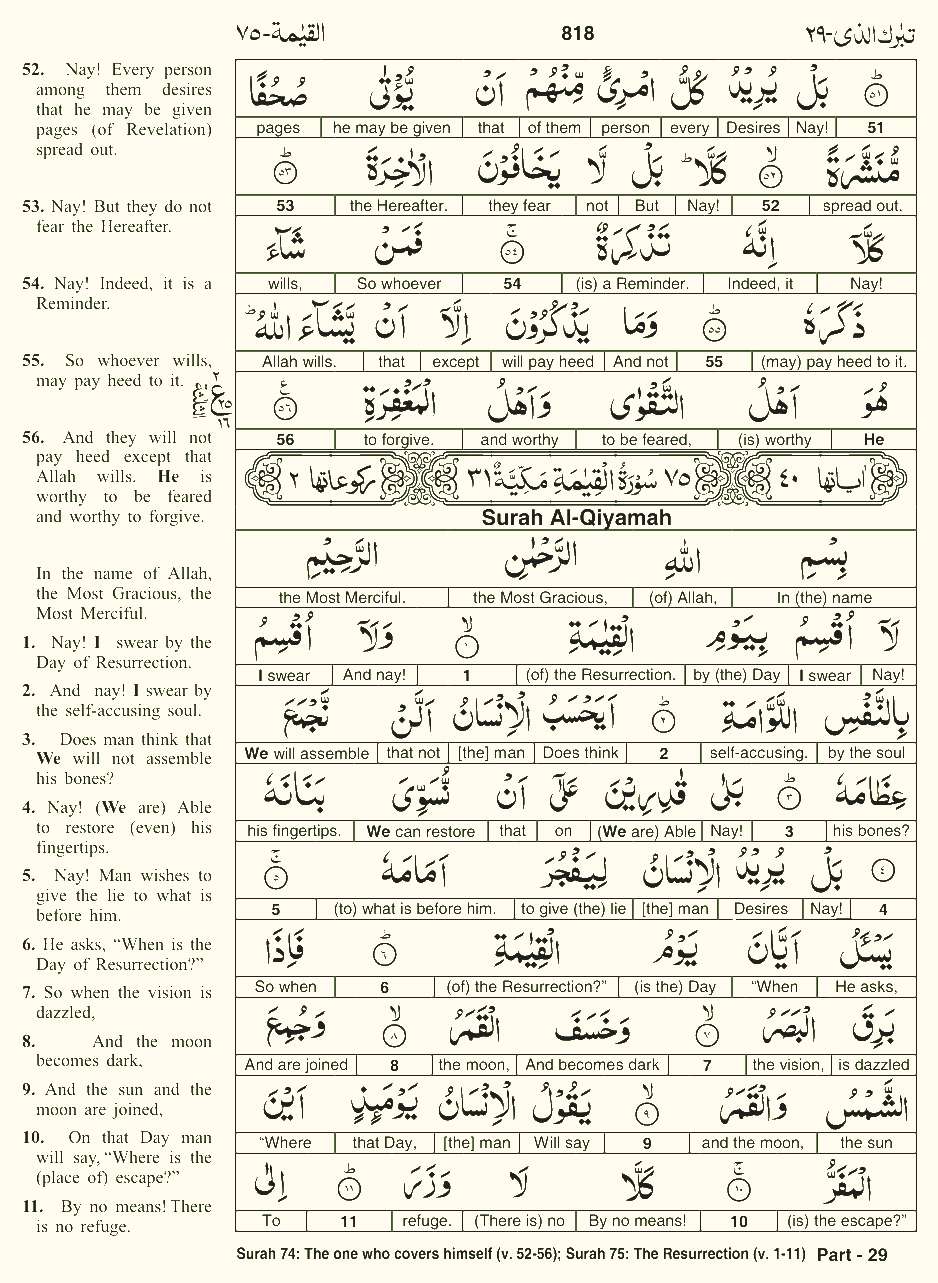 القيٰمة-٧٥ 818 تبٰرك الذى-٢٩
52. Nay! Every person
among them desires
that he may be given
pages (of Revelation)
spread out.
53. Nay! But they do not
fear the Hereafter.
54. Nay! Indeed, it is a
Reminder.
55. So whoever wills,
may pay heed to it.
56. And they will not
pay heed except that
Allah wills. He is
worthy to be feared
and worthy to forgive.
In the name of Allah,
the Most Gracious, the
Most Merciful.
1. Nay! I swear by the
Day of Resurrection.
2. And nay! I swear by
the self-accusing soul.
3. Does man think that
We will not assemble
his bones?
4. Nay! (We are) Able
to restore (even) his
fingertips.
5. Nay! Man wishes to
give the lie to what is
before him.
6. He asks, “When is the
Day of Resurrection?”
7. So when the vision is
dazzled,
8. And the moon
becomes dark,
9. And the sun and the
moon are joined,
10. On that Day man
will say, “Where is the
(place of) escape?”
11. By no means! There
is no refuge.
٥١ ؕ بَلۡ يُرِيۡدُ كُلُّ امۡرِىٴٍ مِّنۡهُمۡ اَنۡ يُّؤۡتٰى صُحُفًا
pages he may be given that of them person every Desires Nay! 51
مُّنَشَّرَةً ۙ ٥٢ كَلَّا ؕ بَلۡ لَّا يَخَافُوۡنَ الۡاٰخِرَةَ ؕ ٥٣
53 the Hereafter. they fear not But Nay! 52 spread out.
كَلَّاۤ اِنَّهٗ تَذۡكِرَةٌ ۚ ٥٤ فَمَنۡ شَآءَ
wills, So whoever 54 (is) a Reminder. Indeed, it Nay!
ذَكَرَهٗ ؕ ٥٥ وَمَا يَذۡكُرُوۡنَ اِلَّاۤ اَنۡ يَّشَآءَ اللّٰهُ ؕ
Allah wills. that except will pay heed And not 55 (may) pay heed to it.
هُوَ اَهۡلُ التَّقۡوٰى وَاَهۡلُ الۡمَغۡفِرَةِ ٥٦ ع
56 to forgive. and worthy to be feared, (is) worthy He
اٰياتها ٤٠ ٧٥ سُوۡرَةُ الۡقِيٰمَةِ مَكِّيَّةٌ ٣١ ركوعاتها ٢
Surah Al-Qiyamah
بِسۡمِ اللّٰهِ الرَّحۡمٰنِ الرَّحِيۡمِ
the Most Merciful. the Most Gracious, (of) Allah, In (the) name
لَاۤ اُقۡسِمُ بِيَوۡمِ الۡقِيٰمَةِ ۙ ١ وَلَاۤ اُقۡسِمُ
I swear And nay! 1 (of) the Resurrection. by (the) Day I swear Nay!
بِالنَّفۡسِ اللَّوَّامَةِ ؕ ٢ اَيَحۡسَبُ الۡاِنۡسَانُ اَلَّنۡ نَّجۡمَعَ
We will assemble that not [the] man Does think 2 self-accusing. by the soul
عِظَامَهٗ ؕ ٣ بَلٰى قٰدِرِيۡنَ عَلٰٓى اَنۡ نُّسَوِّىَ بَنَانَهٗ
his fingertips. We can restore that on (We are) Able Nay! 3 his bones?
٤ بَلۡ يُرِيۡدُ الۡاِنۡسَانُ لِيَفۡجُرَ اَمَامَهٗ ۚ ٥
5 (to) what is before him. to give (the) lie [the] man Desires Nay! 4
يَسۡـَٔلُ اَيَّانَ يَوۡمُ الۡقِيٰمَةِ ؕ ٦ فَاِذَا
So when 6 (of) the Resurrection?” (is the) Day “When He asks,
بَرِقَ الۡبَصَرُ ۙ ٧ وَخَسَفَ الۡقَمَرُ ۙ ٨ وَجُمِعَ
And are joined 8 the moon, And becomes dark 7 the vision, is dazzled
الشَّمۡسُ وَالۡقَمَرُ ۙ ٩ يَقُوۡلُ الۡاِنۡسَانُ يَوۡمَٮِٕذٍ اَيۡنَ
“Where that Day, [the] man Will say 9 and the moon, the sun
الۡمَفَرُّ ۚ ١٠ كَلَّا لَا وَزَرَ ؕ ١١ اِلٰى
To 11 refuge. (There is) no By no means! 10 (is) the escape?”
Surah 74: The one who covers himself (v. 52-56); Surah 75: The Resurrection (v. 1-11) Part - 29